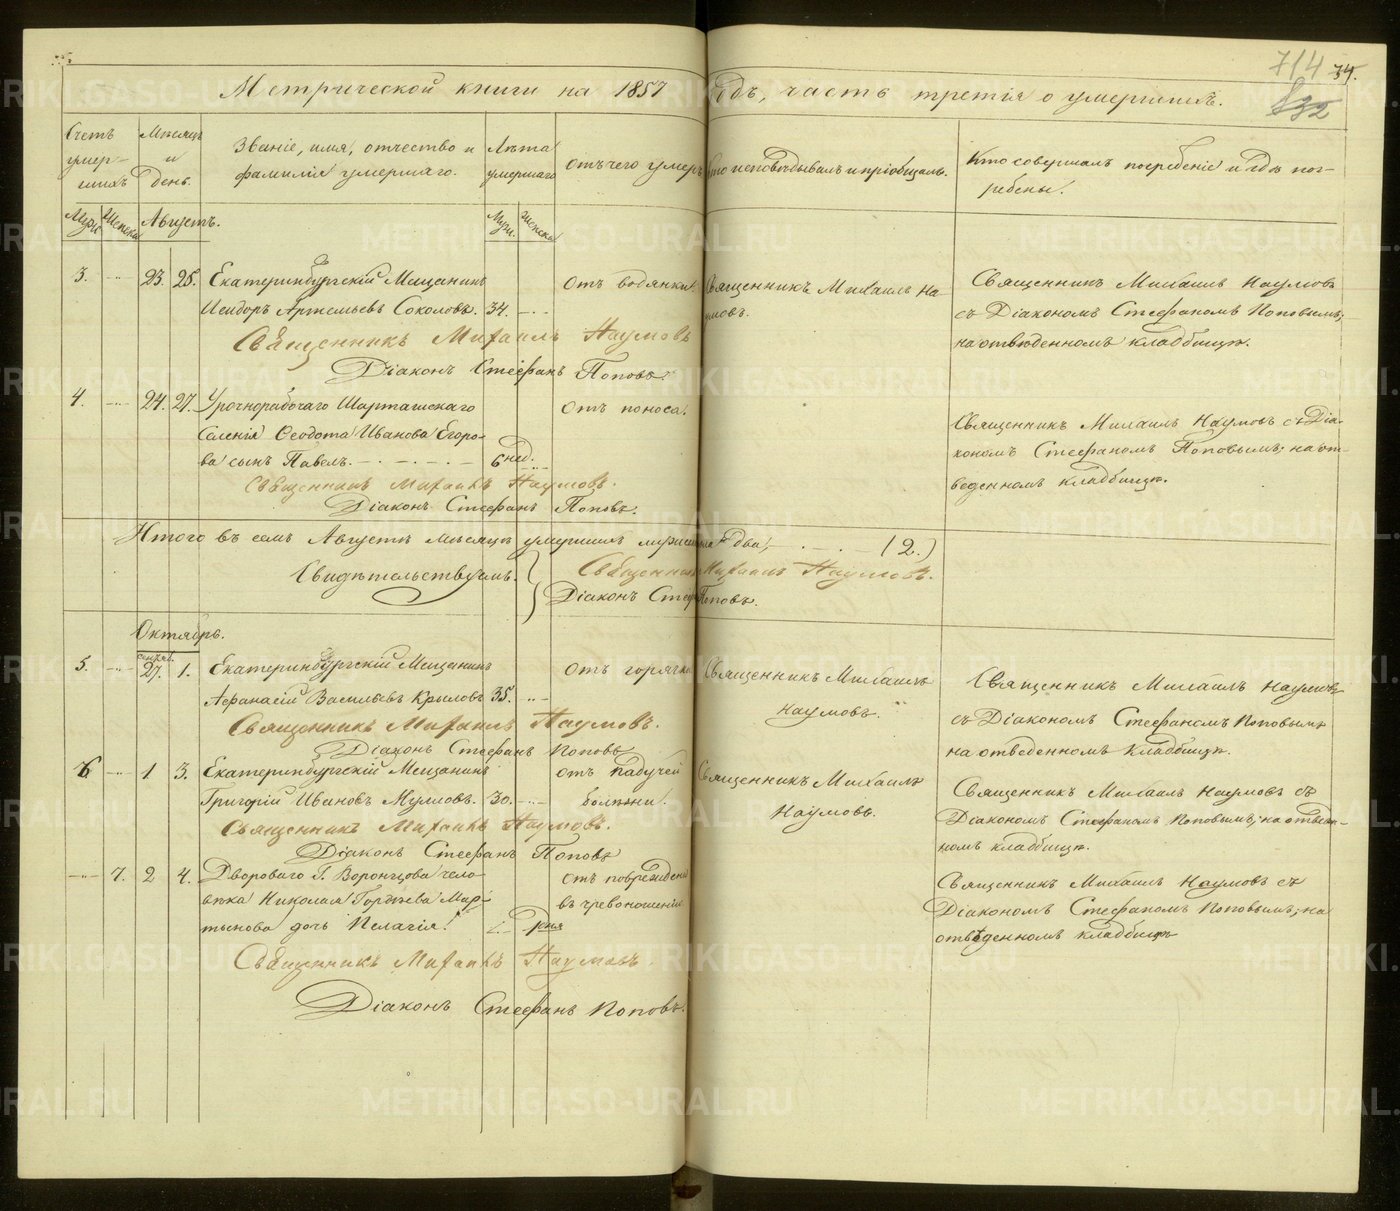 Метрической книги на 1857 годъ, часть третія о умершихъ.
714
34.
832
Счетъ умер-шихъ
Мѣсяцъ и день.
Званіе, имя, отчество и фамилія умершаго.
Лѣта умершаго
Отъ чего умеръ
Кто исповѣдывалъ и пріобщалъ.
Кто совершалъ погребеніе и гдѣ пог-
ребены.
Муж.
Женска
Августъ.
Муж.
Женска
3.
23.
25.
Екатеринбургскій Мещанинъ
Исидоръ Артемьевъ Соколовъ.
34.
Отъ водянки.
Священникъ Михаилъ На-
умовъ.
Священникъ Михаилъ Наумовъ
съ Діакономъ Стефаномъ Поповымъ;
на отведенномъ кладбищѣ.
Священникъ Михаилъ Наумовъ
Діаконъ Стефанъ Поповъ.
4.
24.
27.
Урочнорабочаго Шарташскаго
Селенія Ѳеодота Иванова Егоро-
ва сынъ Павелъ.
6 нед.
Отъ поноса.
Священникъ Михаилъ Наумовъ съ Діа-
кономъ Стефаномъ Поповымъ; на от-
веденномъ кладбищѣ.
Священникъ Михаилъ Наумовъ.
Діаконъ Стефанъ Поповъ.
Итого въ семъ Августѣ мѣсяцѣ умершихъ мужеска пола два, (2.)
Свидѣтельствуемъ.
Священникъ Михаилъ Наумовъ.
Діаконъ Стефанъ Поповъ.
Октябрь.
5.
сентяб.
27.
1.
Екатеринбургскій Мещанинъ
Аѳанасій Васильевъ Крыловъ
35.
отъ горячки
Священникъ Михаилъ
Наумовъ.
Священникъ Михаилъ Наумовъ
съ Діакономъ Стефаномъ Поповымъ
на отведенномъ кладбищѣ.
Священникъ Михаилъ Наумовъ.
Діаконъ Стефанъ Поповъ
6
1
3.
Екатеринбургскій Мещанинъ
Григорій Ивановъ Мулловъ.
30.
отъ падучей
болѣзни.
Священникъ Михаилъ
Наумовъ.
Священникъ Михаилъ Наумовъ съ
Діакономъ Стефаномъ Поповымъ; на отведен-
номъ кладбищѣ.
Священникъ Михаилъ Наумовъ.
Діаконъ Стефанъ Поповъ
7.
2
4.
Двороваго Г. Воронцова чело-
вѣка Николая Гордѣева Мар-
тынова дочь Пелагія.
1. дня
отъ поврежденія
въ чревоношеніи
Священникъ Михаилъ Наумовъ съ
Діакономъ Стефаномъ Поповымъ; на
отведенномъ кладбищѣ
Священникъ Михаилъ Наумовъ.
Діаконъ Стефанъ Поповъ.
METRIKI.GASO-URAL.RU